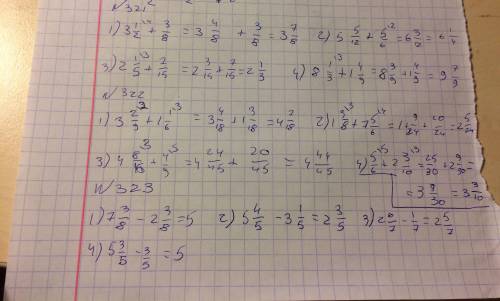 N 321
1) 3 1/2 + 3/8 = 3 4/8 + 3/8 = 3 7/8 2) 5 5/12 + 5/6 = 6 3/12 = 6 1/4
3) 2 1/5 + 2/15 = 2 3/15 + 2/15 = 2 1/3 4) 8 1/3 + 1 4/9 = 8 3/9 + 1 4/9 = 9 7/9
N 322
1) 3 2/9 + 1 1/6 = 3 4/18 + 1 3/18 = 4 7/18
3) 4 24/45 + 20/45 = 4 44/45 4) 5/6 + 2 3/10 = 25/30 + 2 9/30 =
= 3 4/30 = 3
N 323
1) 7 3/8 - 2 3/8 = 5 2) 5 4/5 - 3 1/5 = 2 3/5 3) 2 6/7 - 1/7 = 2 5/7
4) 5 3/5 - 3/5 = 5